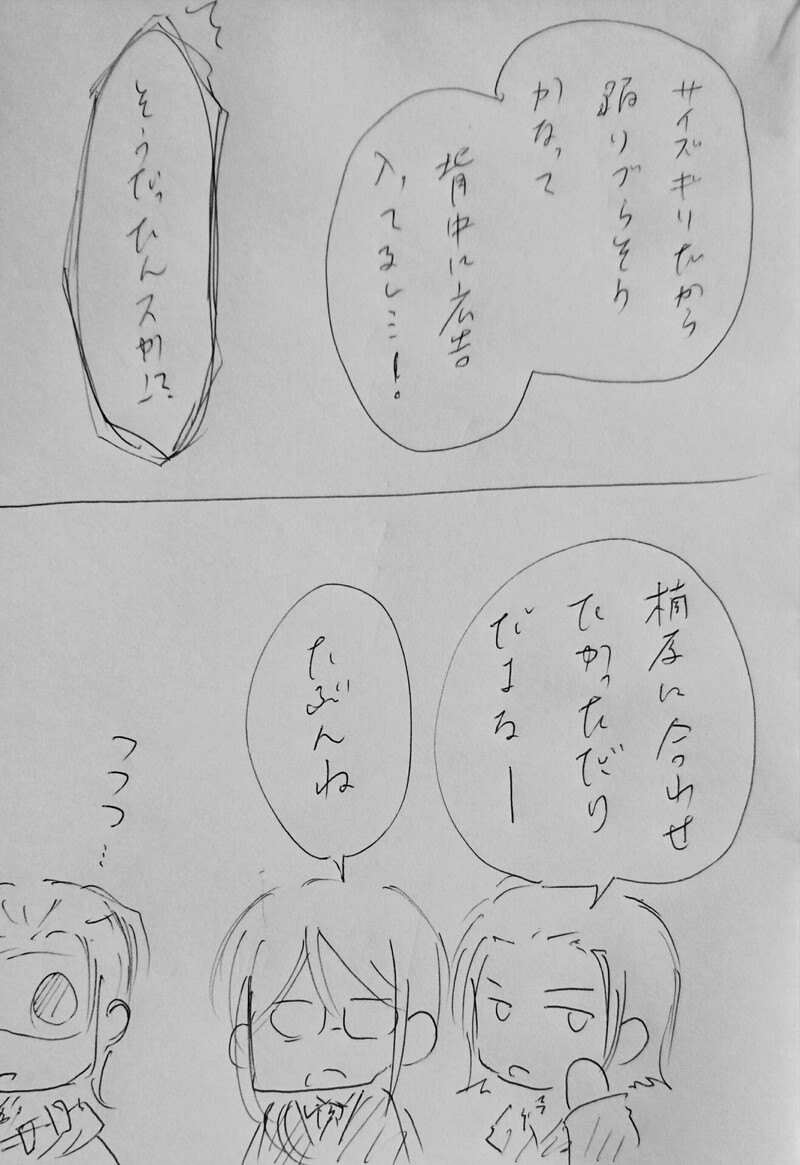 サイズギリだから
踊りづらそう
かなって
背中に広告
入ってるし…!
そうだったんスか!?
に合わせ
たかっただけ
だよねー
たぶんね
つつつ…